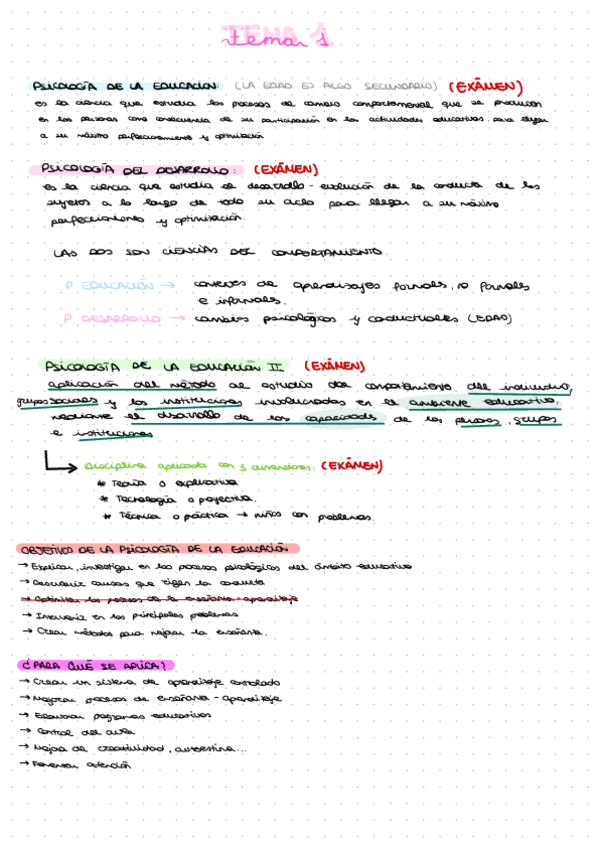 tema 1
PSICOLOGÍA DE LA EDUCACIÓN: (LA EDAD ES ALGO SECUNDARIO) (EXÁMEN)
es la ciencia que estudia los procesos de cambio comportamental que se producen
en las personas como consecuencia de su participación en las actividades educativas, para llegar
a su máximo perfeccionamiento y optimización
PSICOLOGÍA DEL DESARROLLO: (EXÁMEN)
es la ciencia que estudia el desarrollo - evolución de la conducta de los
sujetos a lo largo de todo su ciclo para llegar a su máximo
perfeccionamiento y optimización.
LAS DOS SON CIENCIAS DEL COMPORTAMIENTO.
P EDUCACIÓN → contextos de aprendizajes formales, no formales
e informales.
P DESARROLLO → cambios psicológicos y conductuales (EDAD)
PSICOLOGÍA DE LA EDUCACIÓN II (EXÁMEN)
aplicación del método al estudio del comportamiento del individuo,
grupos sociales y las instituciones involucradas en el ambiente educativo,
mediante el desarrollo de las capacidades de las personas, grupos
e instituciones
Disciplina aplicada con 3 dimensiones: (EXÁMEN)
* Teoría o explicativa
* Tecnología o proyectiva.
* Técnica o práctica → niños con problemas.
OBJETIVO DE LA PSICOLOGÍA DE LA EDUCACIÓN
→ Explicar, investigar en los procesos psicológicos del ámbito educativo
→ Descubrir causas que rigen la conducta
→ Optimizar los procesos de la enseñanza - aprendizaje
→ Intervenir en los principales problemas
→ Crear métodos para mejorar la enseñanza.
¿PARA QUÉ SE APLICA?
→ Crear un sistema de aprendizaje controlado
→ Mejorar procesos de enseñanza - aprendizaje
→ Elaborar programas educativos
→ Control del aula
→ Mejora de creatividad, autoestima...
→ Fomentar atención